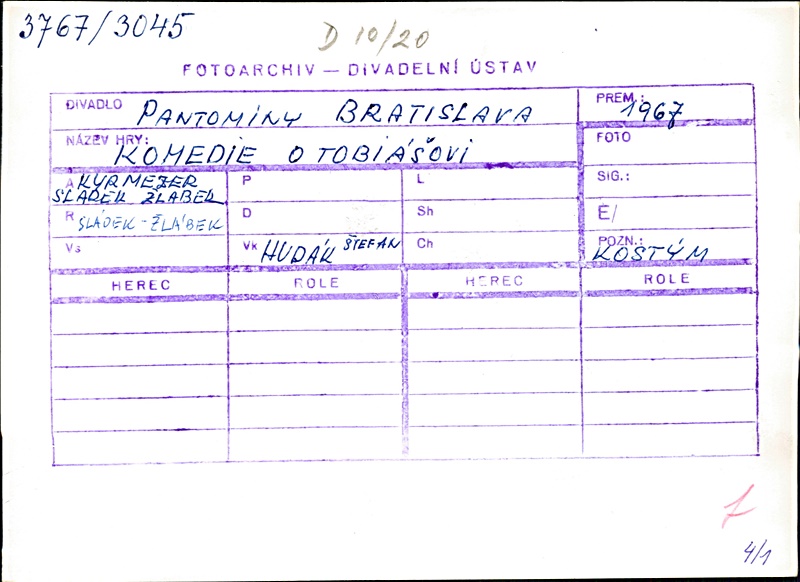 3767/3045
D 10/20
FOTOARCHIV — DIVADELNÍ ÚSTAV
DIVADLO PANTOMÍNY BRATISLAVA
PREM.: 1967
NÁZEV HRY: KOMEDIE O TOBIÁŠOVI
FOTO
A KYRMEZER
SLÁDEK ŽLABEK
P
L
SIG.:
R SLÁDEK - ŽLÁBEK
D
Sh
É/
Vs
Vk HUDÁK ŠTEFAN
Ch
POZN.: KOSTÝM
HEREC ROLE HEREC ROLE
4/1